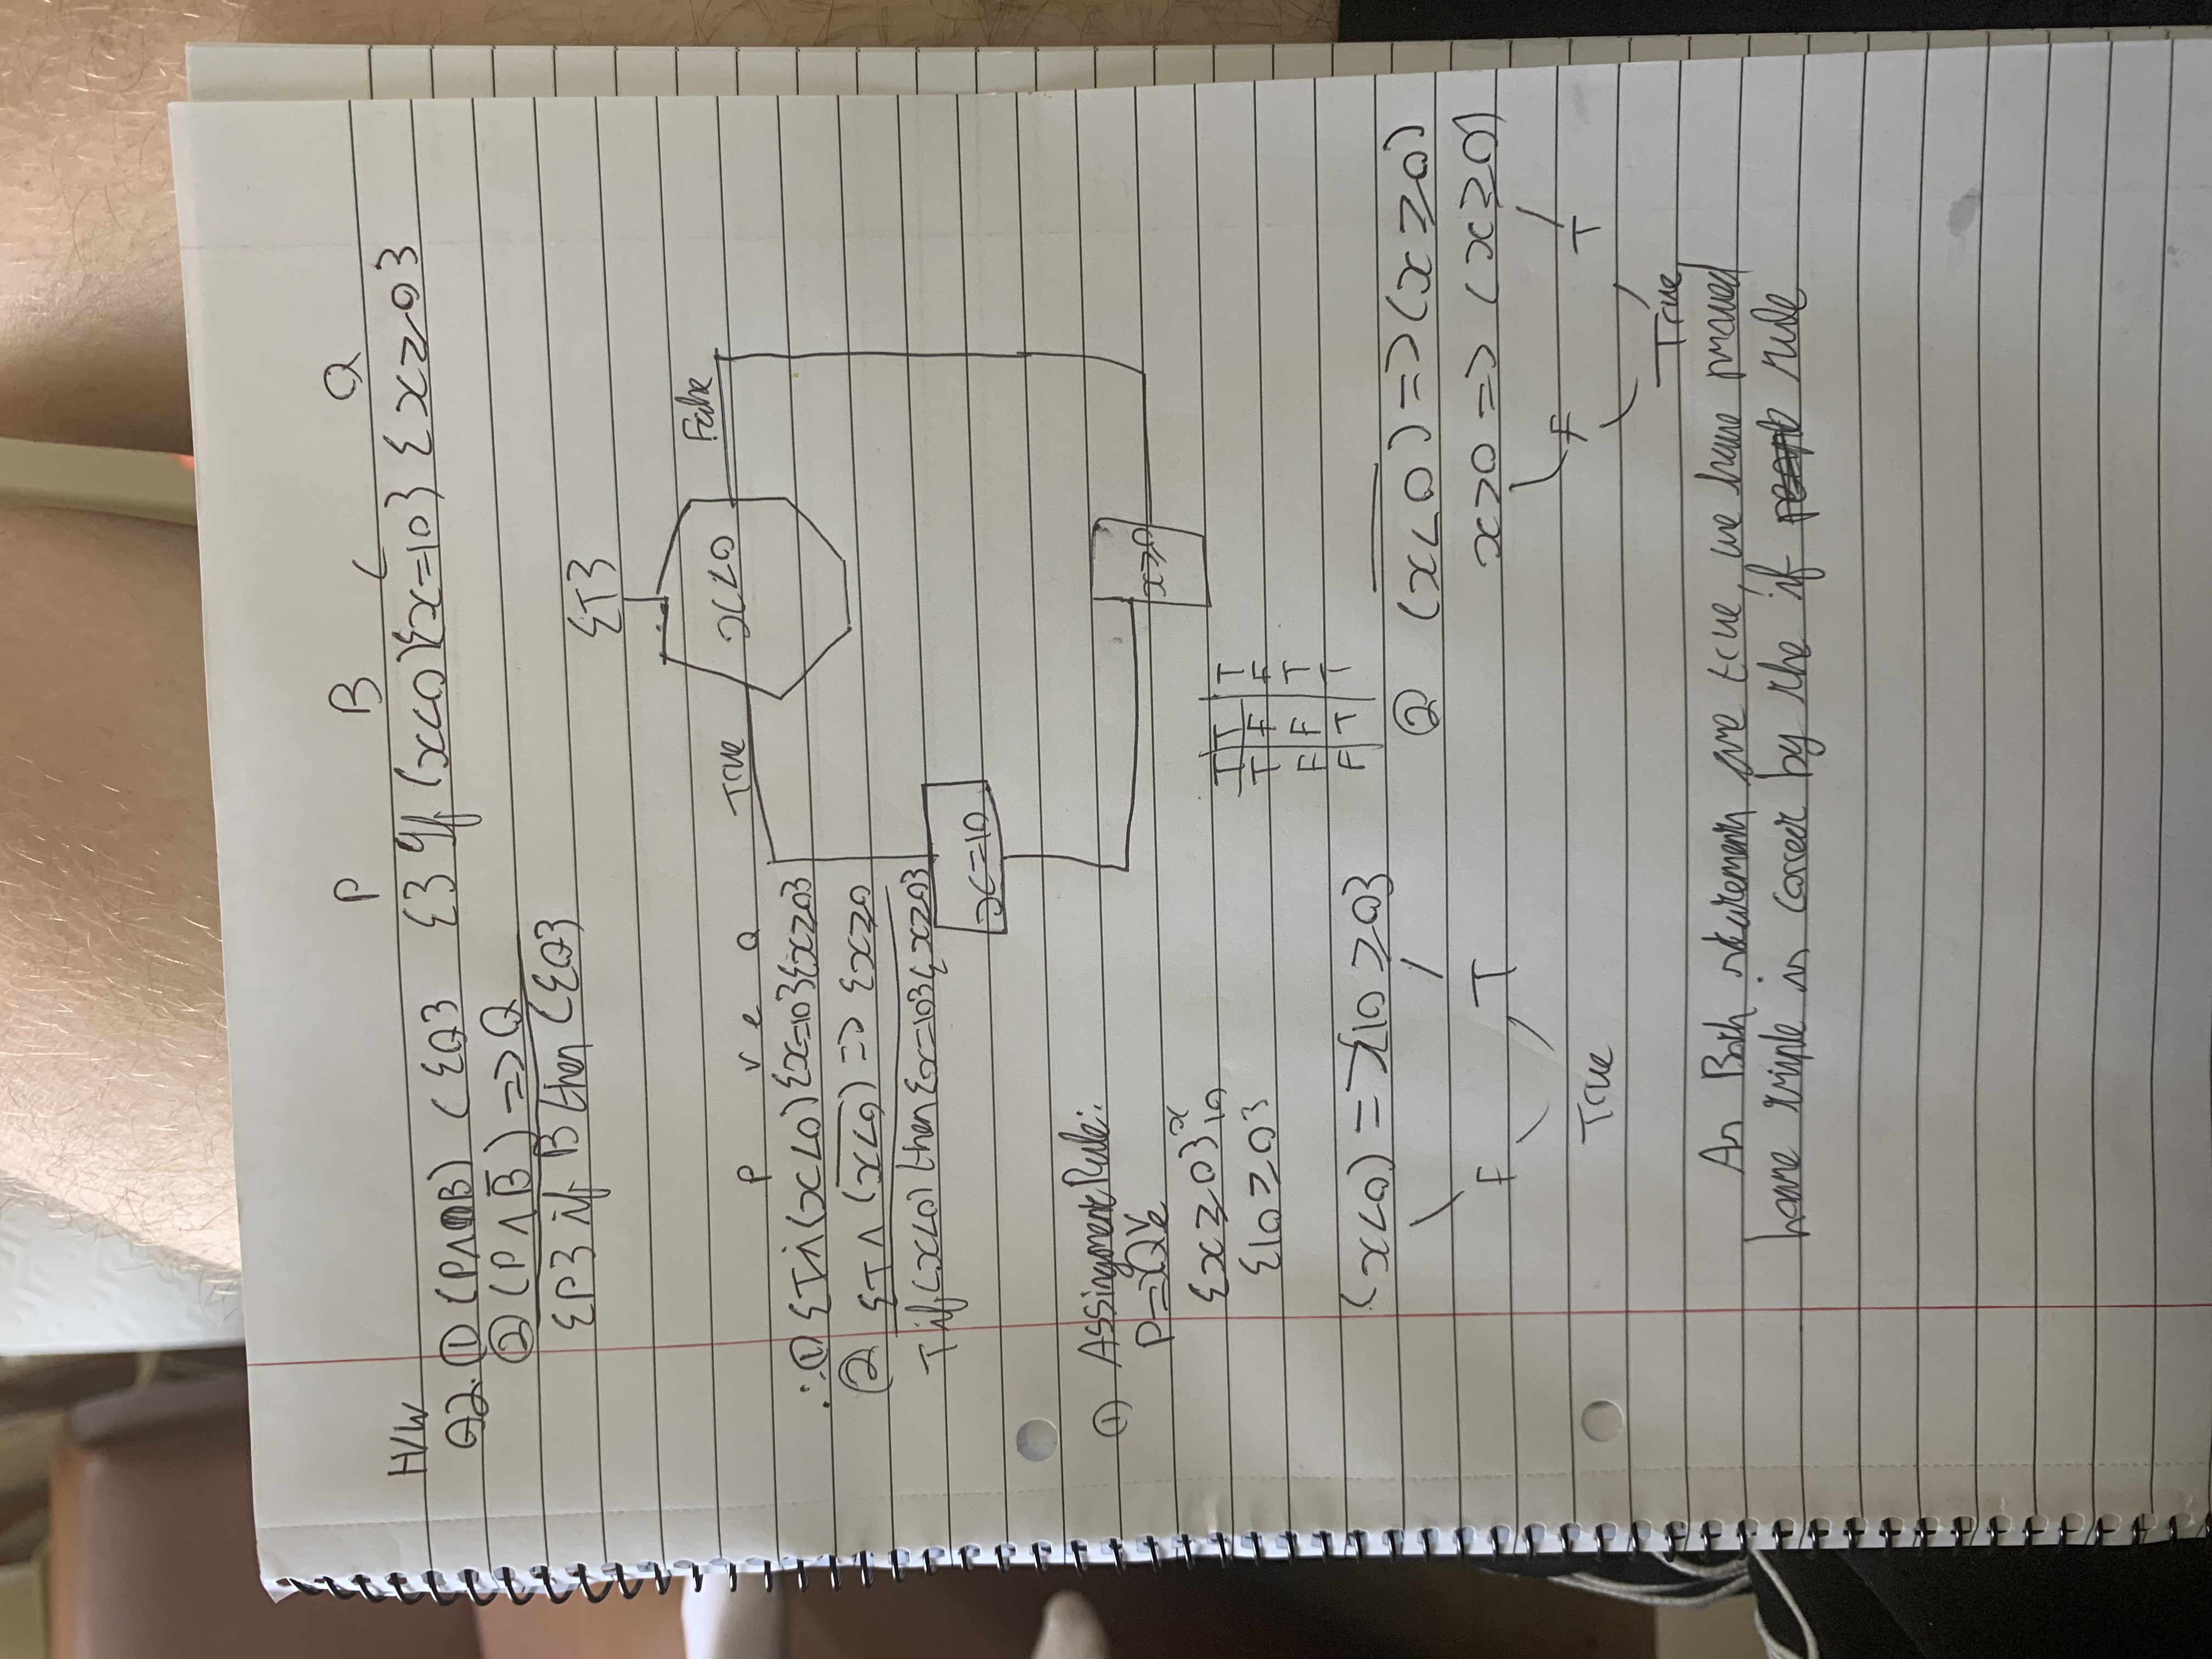 P B C Q
H/W
Q2. ① (P∧B) C {Q} {} If (x<0){x=10} {x≥0}
② (P∧B̅) => Q
{P} if B then C{Q}
{T}
x<0
True
False
P v e Q
∴ ① {T∧(x<0) {x=10}{x≥0}
② {T∧ (x<0)̅ => {x≥0
T if (x<0) then {x=10}{x≥0}
x=10
x≥0
① Assingment Rule:
P=>Qᵛₑ
{x≥0}ˣ₁₀
{10≥0}
T T T
T F F
F F T
F T T
(x<0) => {10≥0}
F T
True
② (x<0)̅ => (x≥0)
x>0 => (x≥0)
F T
True
As Both statements are true, we have proved
hoare triple is correct by the if rule